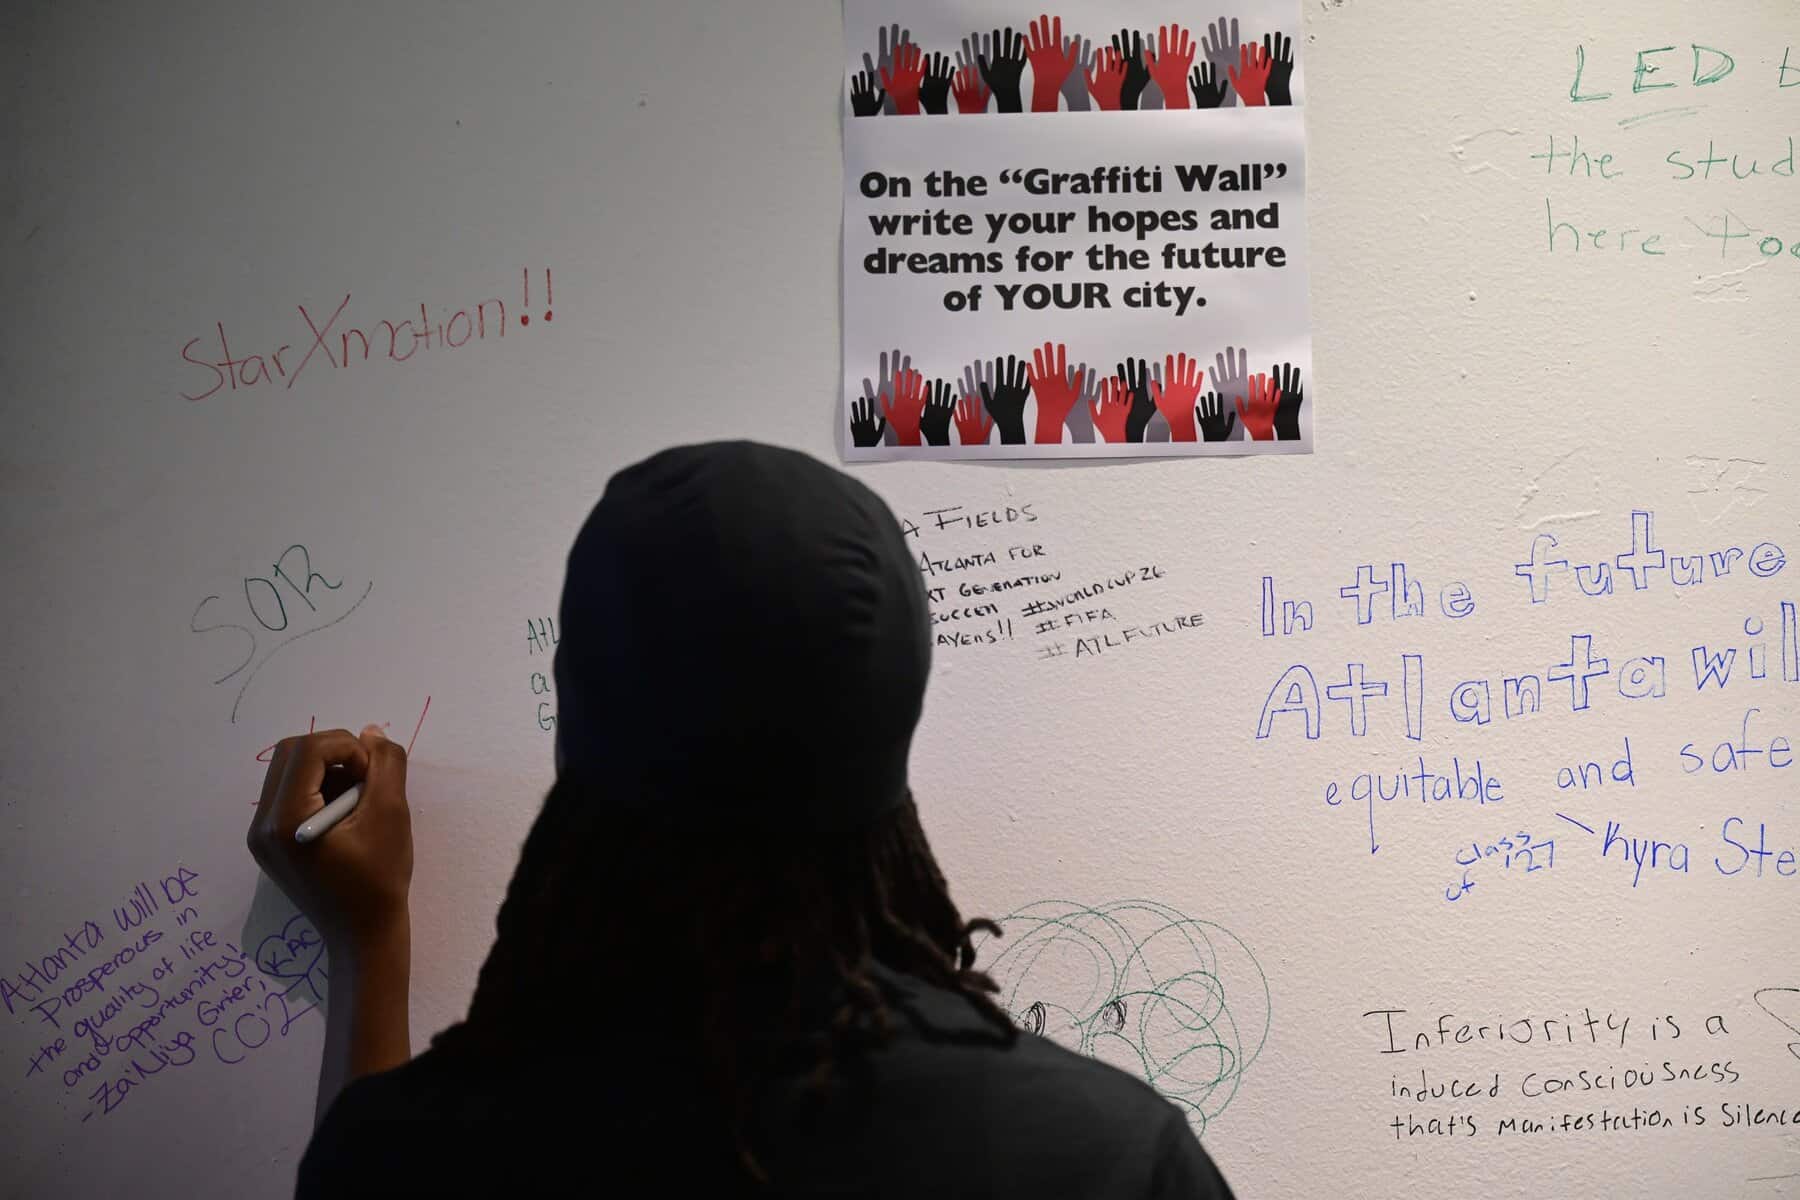 On the “Graffiti Wall”
write your hopes and
dreams for the future
of YOUR city.
LED
the
here
StarXmotion!!
SOR
FIELDS
ATLANTA FOR
GENERATION
#WORLDCUP26
#FIFA
#ATLFUTURE
In the future
Atlanta
equitable and safe
class
of '27
Kyra
Atlanta will be
Prosperous in
the quality of life
and opportunity!
-Za'Niya Grier,
KAC
CO27
INferiority is a
induced consciousness
that's manifestation is